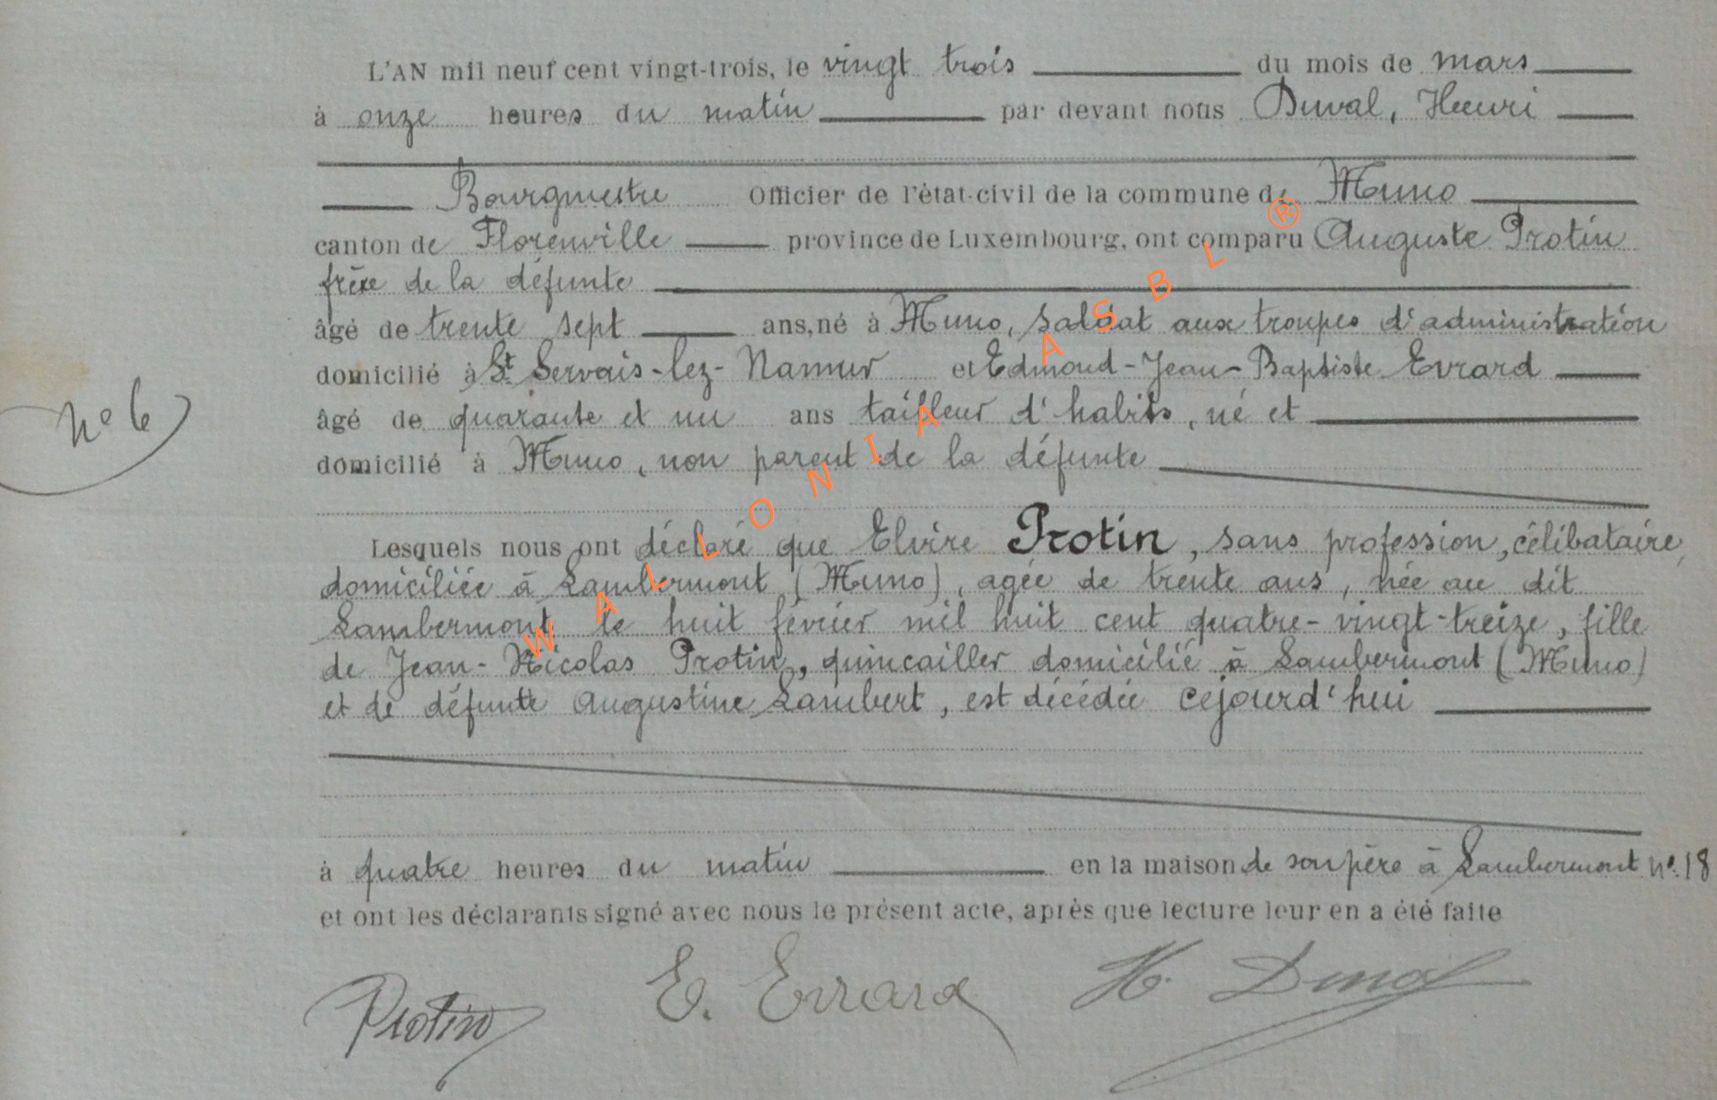 L'AN mil neuf cent vingt-trois, le vingt trois du mois de mars
à onze heures du matin par devant nous Duval, Henri
Bourgmestre Officier de l'état-civil de la commune de Muno
canton de Florenville province de Luxembourg, ont comparu Auguste Protin
frère de la défunte
âgé de trente sept ans, né à Muno, soldat aux troupes d'administration
domicilié à St. Servais-lez-Namur et Edmond-Jean-Baptiste Evrard
N° 6
âgé de quarante et un ans tailleur d'habits, né et
domicilié à Muno, non parent de la défunte
Lesquels nous ont déclaré que Elvire Protin, sans profession, célibataire,
domiciliée à Lambermont (Muno), agée de trente ans, née au dit
Lambermont le huit février mil huit cent quatre-vingt-treize, fille
de Jean-Nicolas Protin, quincailler domicilié à Lambermont (Muno)
et de défunte Augustine Lambert, est décédée cejourd'hui
à quatre heures du matin en la maison de son père à Lambermont n°. 18
et ont les déclarants signé avec nous le présent acte, après que lecture leur en a été faite
Protin E. Evrard H. Duval
WALLONIA ASBL ®